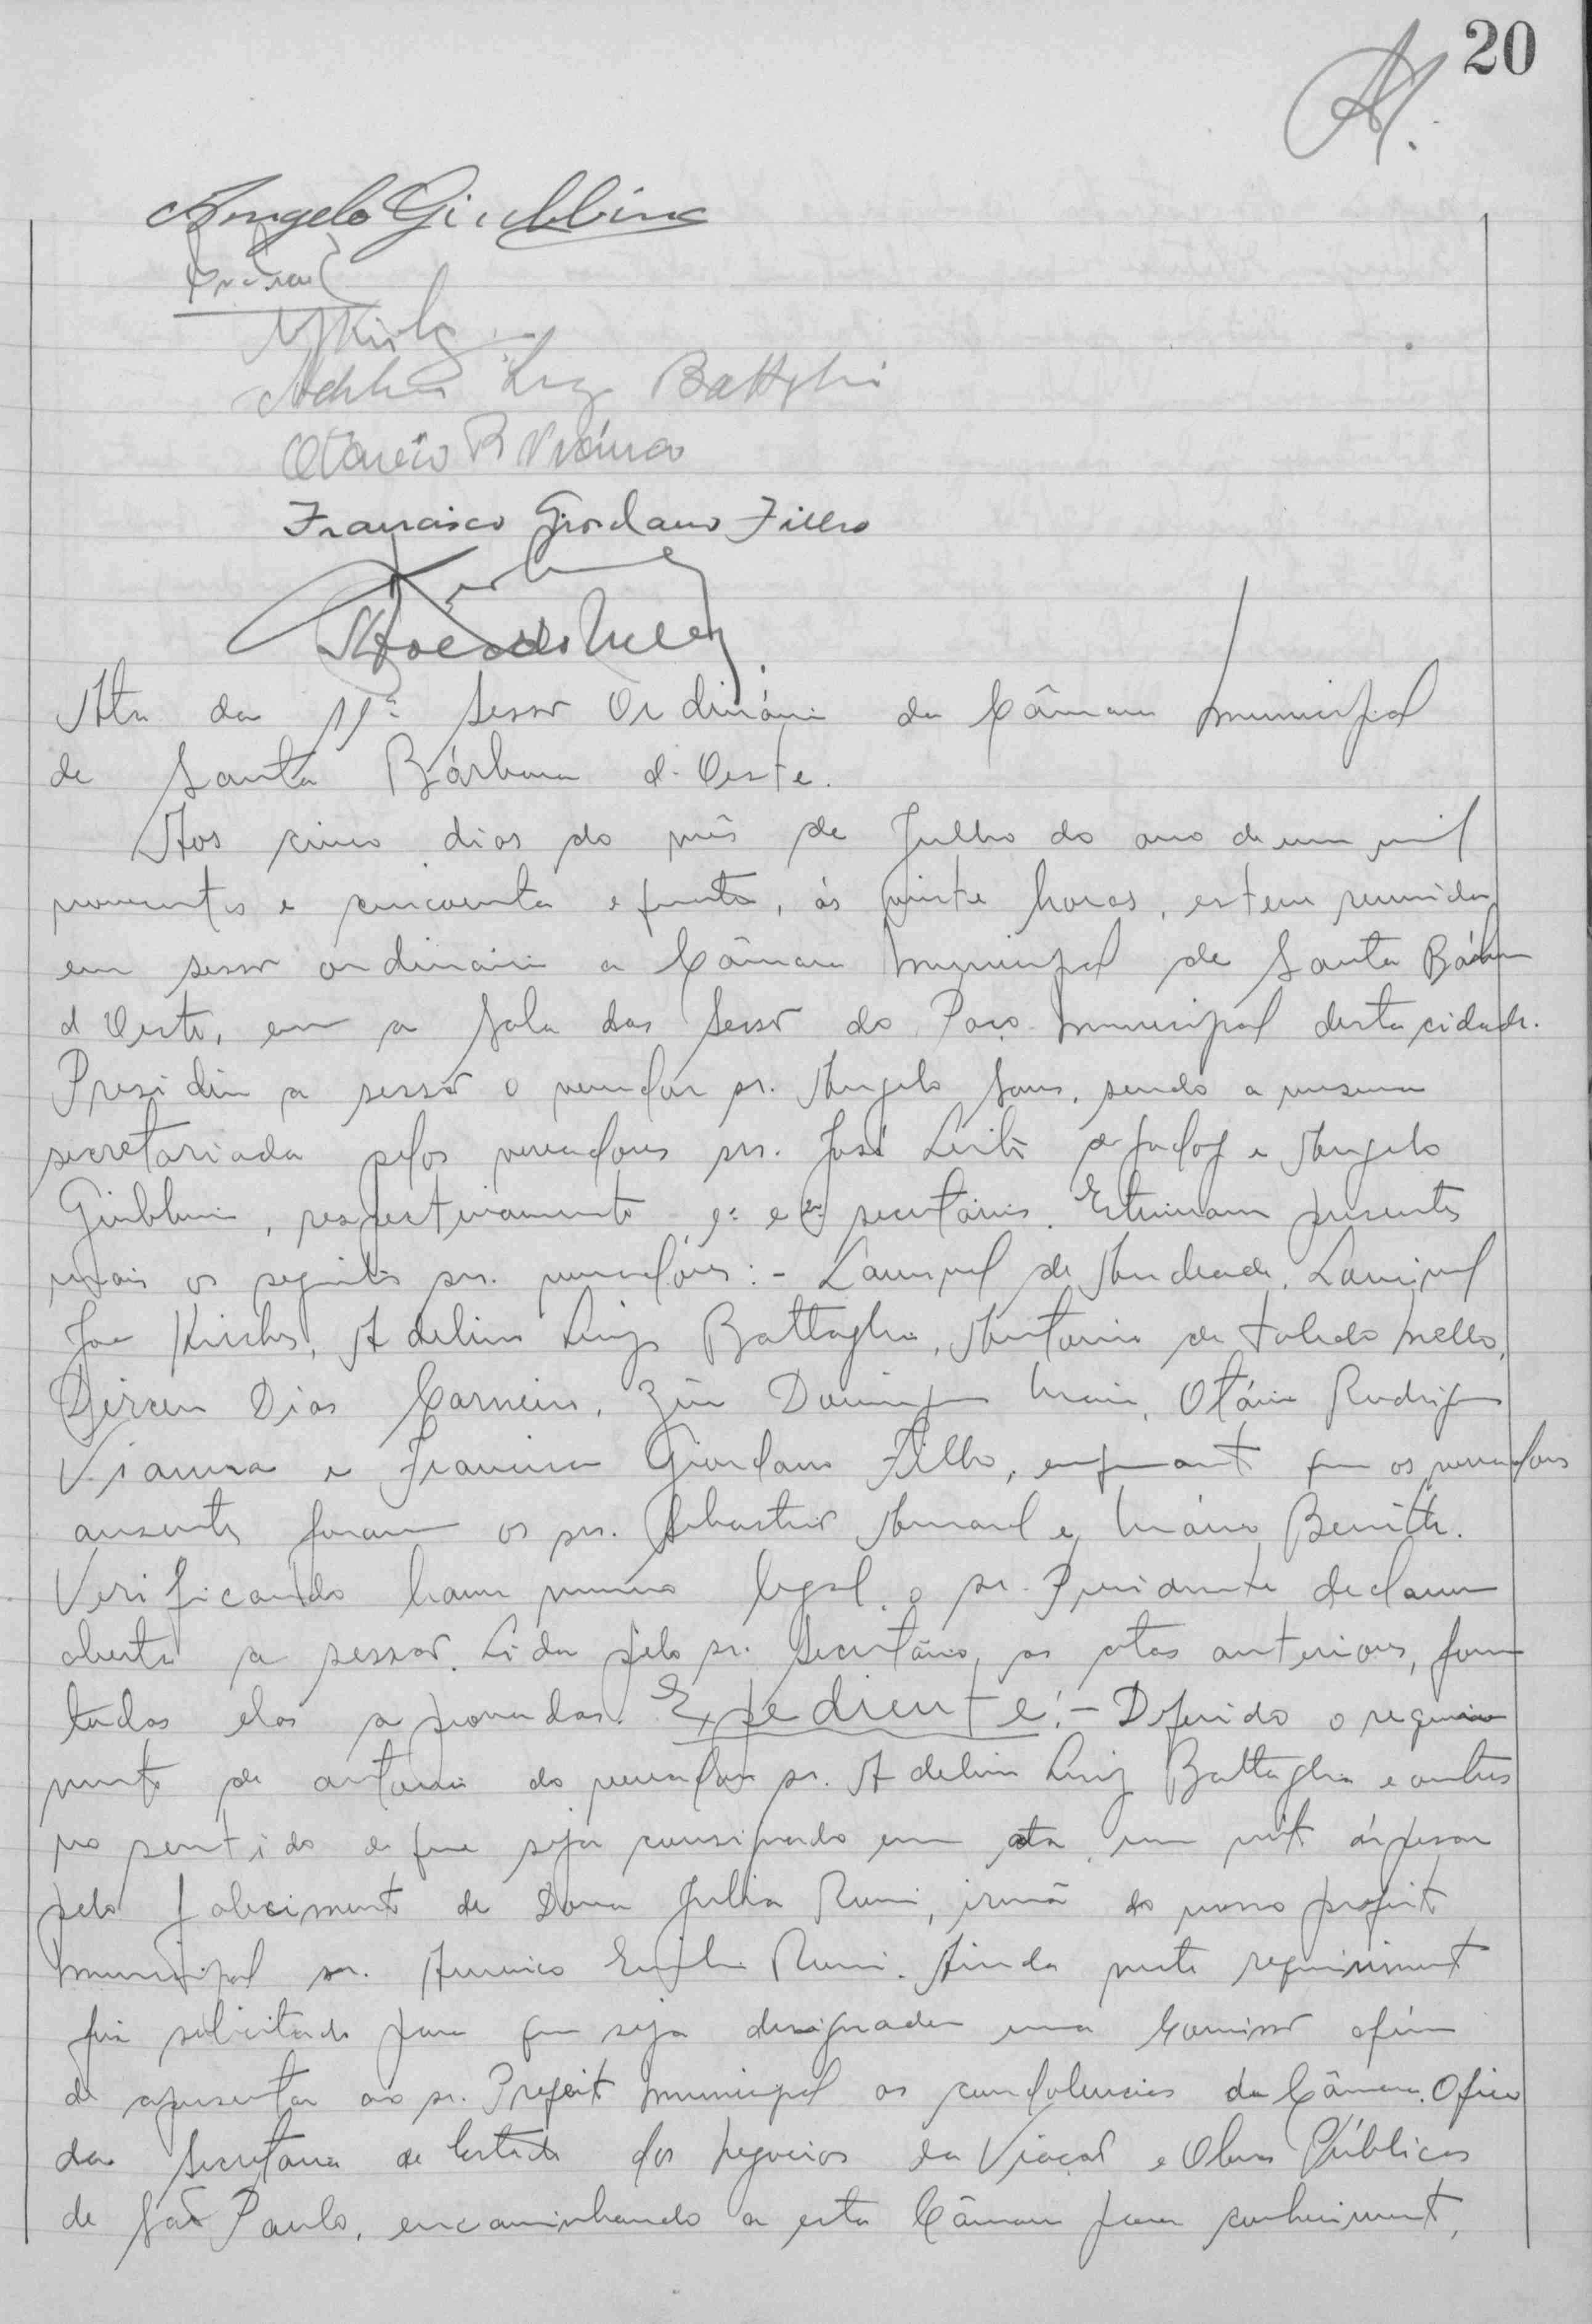 20
Angelo Giubbina
Luiz Battaglia
Otavio R Vianna
Francisco Giordano Filho
Ata da 11ª Sessão Ordinária da Câmara Municipal
de Santa Bárbara d'Oeste.
Aos cinco dias do mês de Julho do ano de um mil
novecentos e cincoenta e , ás vinte horas, esteve reunida
em sessão ordinária a Câmara Municipal de Santa Bárbara
d'Oeste, em a Sala das Sessão do Paço Municipal desta cidade.
Presidiu a sessão o vereador sr. Angelo Sans, sendo a mesma
secretariada pelos vereadores srs. José Leite de Godoy e Angelo
Giubbina, respectivamente 1º e 2º secretários. Estiveram presentes
mais os seguintes srs. vereadores:- Laurival de Andrade, Laurival
Kirche, Adelino Luiz Battaglia, Antonio de Toledo Mello,
Dirceu Dias Carneiro, Domingos Maia, Otávio Rodrigues
Vianna e Francisco Giordano Filho, enquanto que os vereadores
ausentes foram os srs. Sebastião Amaral e Mário Benith.
Verificando haver numero legal o sr. Presidente declarou
aberta a sessão. Lida pelo sr. Secretário, as atas anteriores, foram
todas elas aprovadas. Expediente:- Deferido o requeri
mento de autoria do vereador sr. Adelino Luiz Battaglia e outros
no sentido de que seja consignado em ata um voto de pesar
pelo falecimento de Dona Julia Rumi, irmã do nosso prefeito
municipal sr. Americo Emilio Rumi. Ainda neste requerimento
foi solicitado para que seja designada uma Comissão afim
de apresentar ao sr. Prefeito Municipal as condolencias da Câmara. Oficio
da Secretaria de Estado dos Negocios da Viação e Obras Públicas
de São Paulo, encaminhando a esta Câmara para conhecimento,